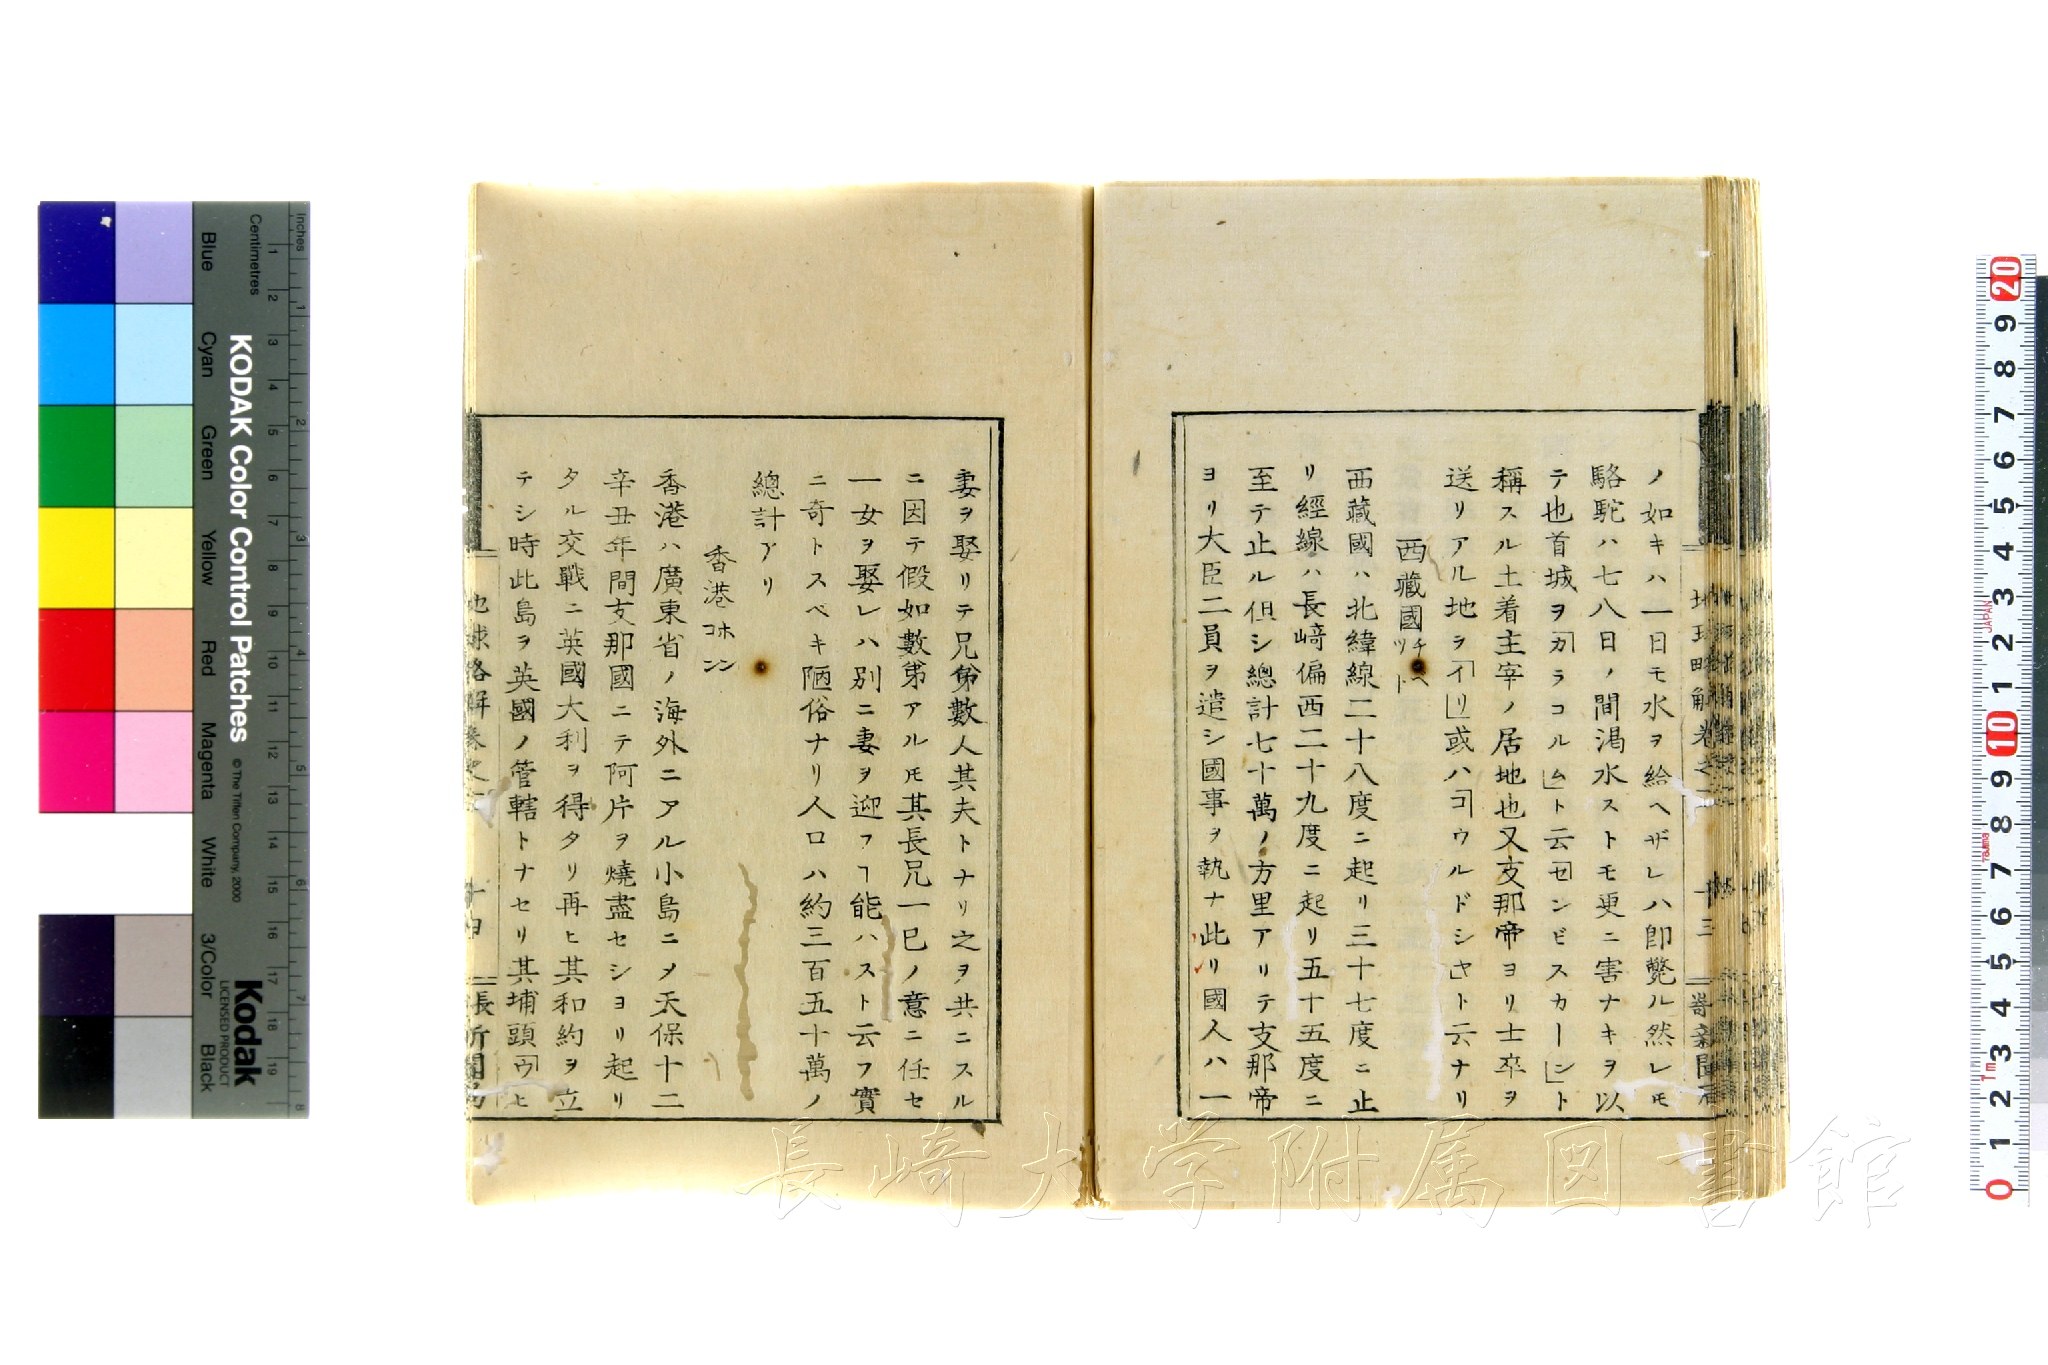 ノ如キハ一日モ水ヲ給ヘザレハ即斃ル然レ𪜈
駱駝ハ七八日ノ間渇水ストモ更ニ害ナキヲ以
テ也首城ヲ「カラコルム」ト云「センビスカーン」ト
稱スル土着主宰ノ居地也又支那帝ヨリ士卒ヲ
送リアル地ヲ「イリ」或ハ「コウルドシャ」ト云ナリ
西藏國チヘツト
西藏國ハ北緯線二十八度ニ起リ三十七度ニ止
リ經線ハ長﨑偏西二十九度ニ起リ五十五度ニ
至テ止ル但シ總計七十萬ノ方里アリテ支那帝
ヨリ大臣二員ヲ遣シ國事ヲ執ナ此リ國人ハ一
妻ヲ娶リテ兄弟數人其夫トナリ之ヲ共ニスル
ニ因テ假如數弟アル𪜈其長兄一已ノ意ニ任セ
一女ヲ娶レハ別ニ妻ヲ迎フヿ能ハスト云フ實
ニ奇トスベキ陋俗ナリ人口ハ約三百五十萬ノ
總計アリ
香港ホンコン
香港ハ廣東省ノ海外ニアル小島ニ〆天保十二
辛丑年間支那國ニテ阿片ヲ燒盡セシヨリ起リ
タル交戰ニ英國大利ヲ得タリ再ヒ其和約ヲ立
テシ時此島ヲ英國ノ管轄トナセリ其埔頭「ウヒ
地球略解卷之
十四
長
KODAK Color Control Patches
© The Tiffen Company, 2000
Kodak
LICENSED PRODUCT
Inches
Centimetres
Blue
Cyan
Green
Yellow
Red
Magenta
White
3/Color
Black
1 2 3 4 5 6 7 8 9 10 11 12 13 14 15 16 17 18 19
1 2 3 4 5 6 7 8
20 9 8 7 6 5 4 3 2 1 10 9 8 7 6 5 4 3 2 1 0
JAPAN
長崎大学附属図書館